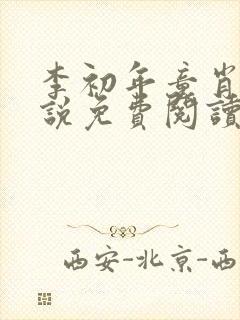 李初年章肖
說免費閱讀
西安-北京-西